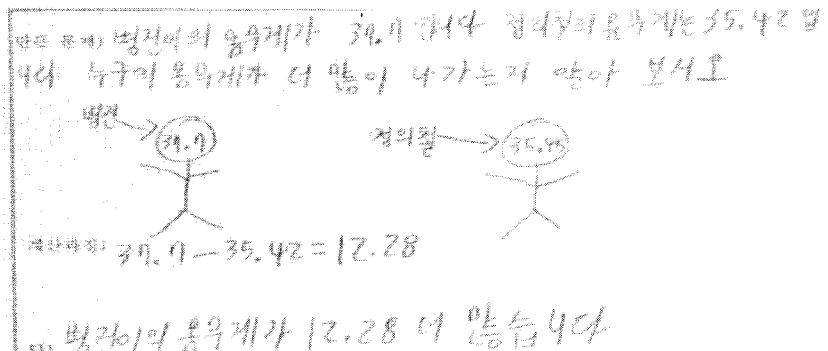 만든 문제) 병진이의 몸무게가 37.7 입니다 정의철의 몸무게는 35.42 입
니다 누구의 몸무게가 더 많이 나가는지 알아 보시오
병진 37.7 정의철 35.45
계산과정: 37.7-35.42=12.28
답: 병진이의 몸무게가 12.28 더 많습니다